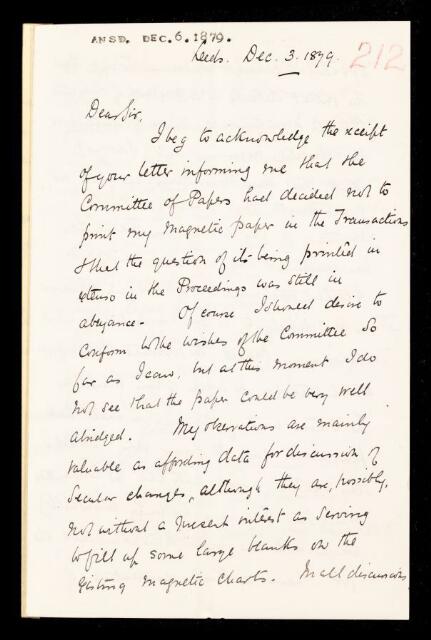 ANSD. DEC. 6. 1879.
212
Leeds. Dec. 3. 1879.
Dear Sir,
I beg to acknowledge the receipt
of your letter informing me that the
Committee of Papers had decided not to
print my magnetic paper in the Transactions
& that the question of its being printed in
extenso in the Proceedings was still in
abeyance. Of course I should desire to
conform to the wishes of the Committee so
far as I can, but at this moment I do
not see that the paper could be very well
abridged. My observations are mainly
valuable as affording data for discussion of
secular changes, although they are, possibly,
not without a present interest as serving
to fill up some large blanks on the
existing magnetic charts. In all discussions